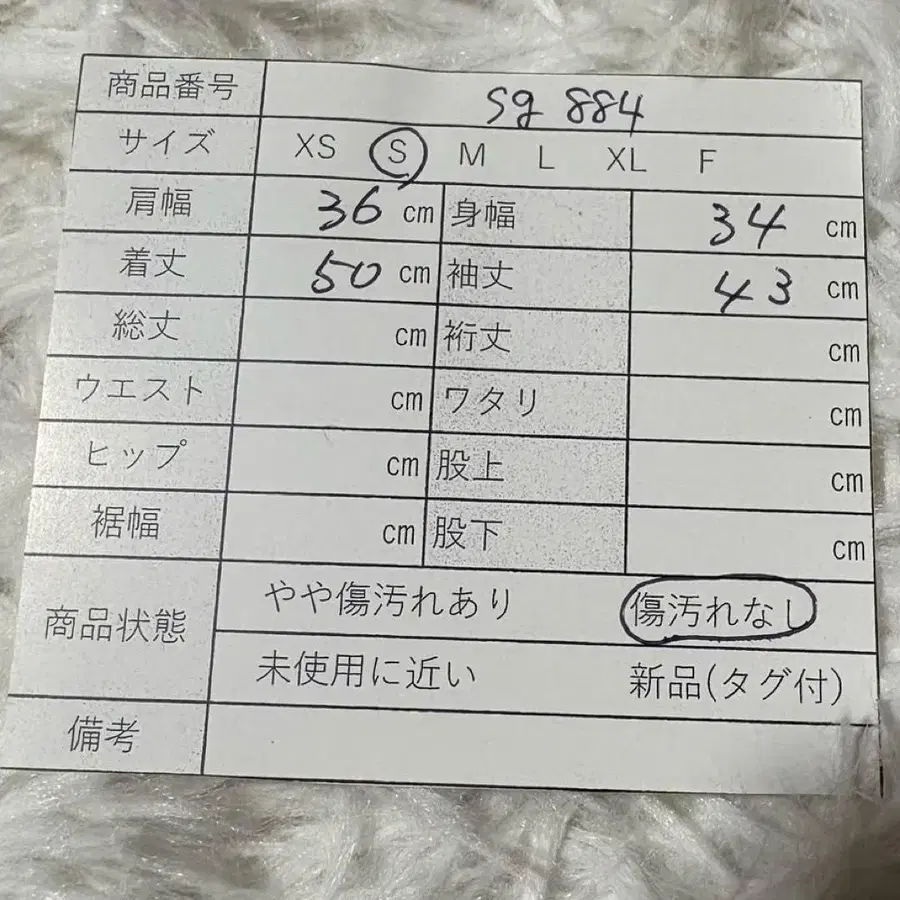 商品番号 sg 884
サイズ XS S M L XL F
肩幅 36 cm 身幅 34 cm
着丈 50 cm 袖丈 43 cm
総丈 cm 裄丈 cm
ウエスト cm ワタリ cm
ヒップ cm 股上 cm
裾幅 cm 股下 cm
商品状態 やや傷汚れあり 傷汚れなし
未使用に近い 新品(タグ付)
備考